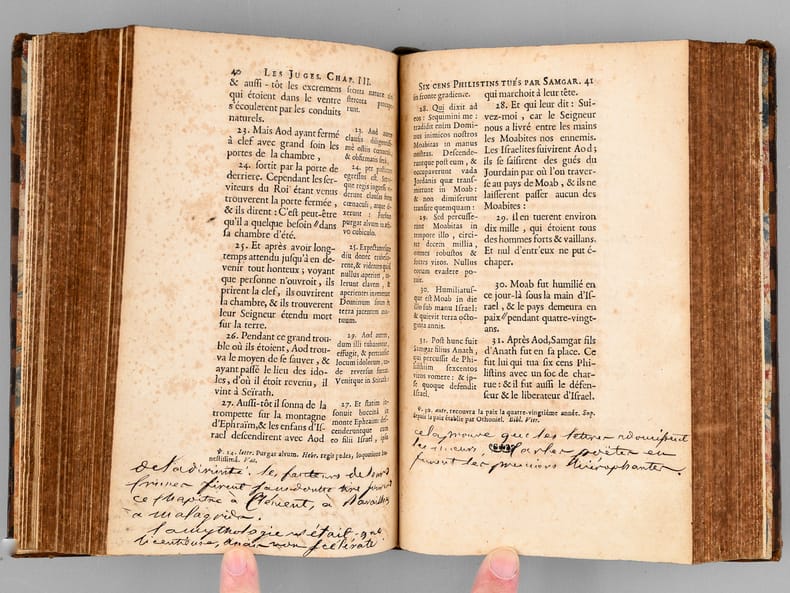 40 LES JUGES. CHAP. III.
& aussi-tôt les excremens
qui étoient dans le ventre
s'écoulerent par les conduits
naturels.
23. Mais Aod ayant fermé
à clef avec grand soin les
portes de la chambre,
24. sortit par la porte de
derriere. Cependant les ser-
viteurs du Roi étant venus
trouverent la porte fermée,
& ils dirent : C'est peut-être
qu'il a quelque besoin dans
sa chambre d'été.
25. Et après avoir long-
temps attendu jusqu'à en de-
venir tout honteux ; voyant
que personne n'ouvroit, ils
prirent la clef, ils ouvrirent
la chambre, & ils trouverent
leur Seigneur étendu mort
sur la terre.
26. Pendant ce grand trou-
ble où ils étoient, Aod trou-
va le moyen de se sauver, &
ayant passé le lieu des ido-
les, d'où il étoit revenu, il
vint à Seïrath.
27. Aussi-tôt il sonna de la
trompette sur la montagne
d'Ephraïm, & les enfans d'Is-
rael descendirent avec Aod
secreta naturæ
stercora
runt.
23. Aod autem
clausis
mè ostiis
& obfirmatis
24. per
egressus est.
que regis ingressi
derunt clausas
cœnaculi, atque
xerunt : Forsitan
purgat alvum in
vo cubiculo.
25. Expectantesque
diu donec
rent, & videntes quòd
nullus aperiret,
lerunt clavem, &
aperientes invenerunt
Dominum suum in
terra jacentem
tuum.
26. Aod autem,
dum illi turbarentur,
effugit, & pertransiit
locum idolorum,
de reversus fuerat.
Venitque in Seirath :
27. Et statim
sonuit buccinâ in
monte Ephraim
descenderuntque cum
eo filii Israel,
℣. 24. lettr. Purgat alvum. Hebr. tegit pedes, loquutione
nestissimâ. Vat.
de la divinité. les
firent sans doute lire
ce chapitre à Clément, à Ravaillac
à malagrida.
la mythologie était
licentieuse, mais non scélérate
SIX CENS PHILISTINS TUÉS PAR SAMGAR. 41
in fronte gradiente.
28. Qui dixit ad
eos : Sequimini me :
tradidit enim Domi-
nus inimicos nostros
Moabitas in manus
nostras. Descende-
runtque post eum, &
occupaverunt vada
Jordanis quæ trans-
mittunt in Moab :
& non dimiserunt
transire quemquam :
29. Sed percusse-
runt Moabitas in
tempore illo, circi-
ter decem millia,
omnes robustos &
fortes viros. Nullus
eorum evadere po-
tuit.
30. Humiliatus-
que est Moab in die
illo sub manu Israel :
& quievit terra octo-
ginta annis.
31. Post hunc fuit
Samgar filius Anath,
qui percussit de Phi-
listhiim sexcentos
viros vomere : & ip-
se quoque defendit
Israel.
qui marchoit à leur tête.
28. Et qui leur dit : Sui-
vez-moi, car le Seigneur
nous a livré entre les mains
les Moabites nos ennemis.
Les Israelites suivirent Aod ;
ils se saisirent des gués du
Jourdain par où l'on traver-
se au pays de Moab, & ils ne
laisserent passer aucun des
Moabites :
29. Il en tuerent environ
dix mille, qui étoient tous
des hommes forts & vaillans.
Et nul d'entr'eux ne put é-
chaper.
30. Moab fut humilié en
ce jour-là sous la main d'Is-
rael, & le pays demeura en
paix pendant quatre-vingt-
ans.
31. Après Aod, Samgar fils
d'Anath fut en sa place. Ce
fut lui qui tua six cens Phi-
listins avec un soc de char-
rue : & il fut aussi le défen-
seur & le liberateur d'Israel.
℣. 30. Autr. recouvra la paix la quatre-vingtième année. Sup.
depuis la paix établie par Othoniel. Bibl. Vitr.
cela prouve que les lettres adoucissent
les mœurs, car les poëtes en
furent les premiers hiérophantes.